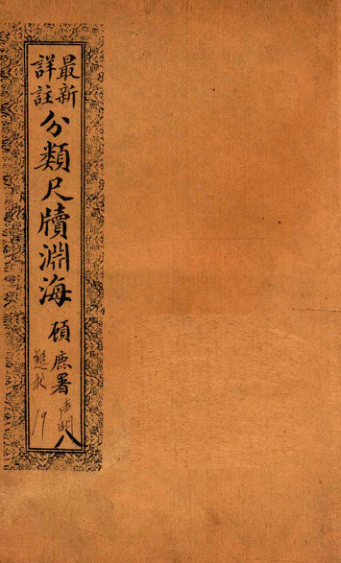 最新
詳註
分類尺牘淵海
碩鹿署
八
19